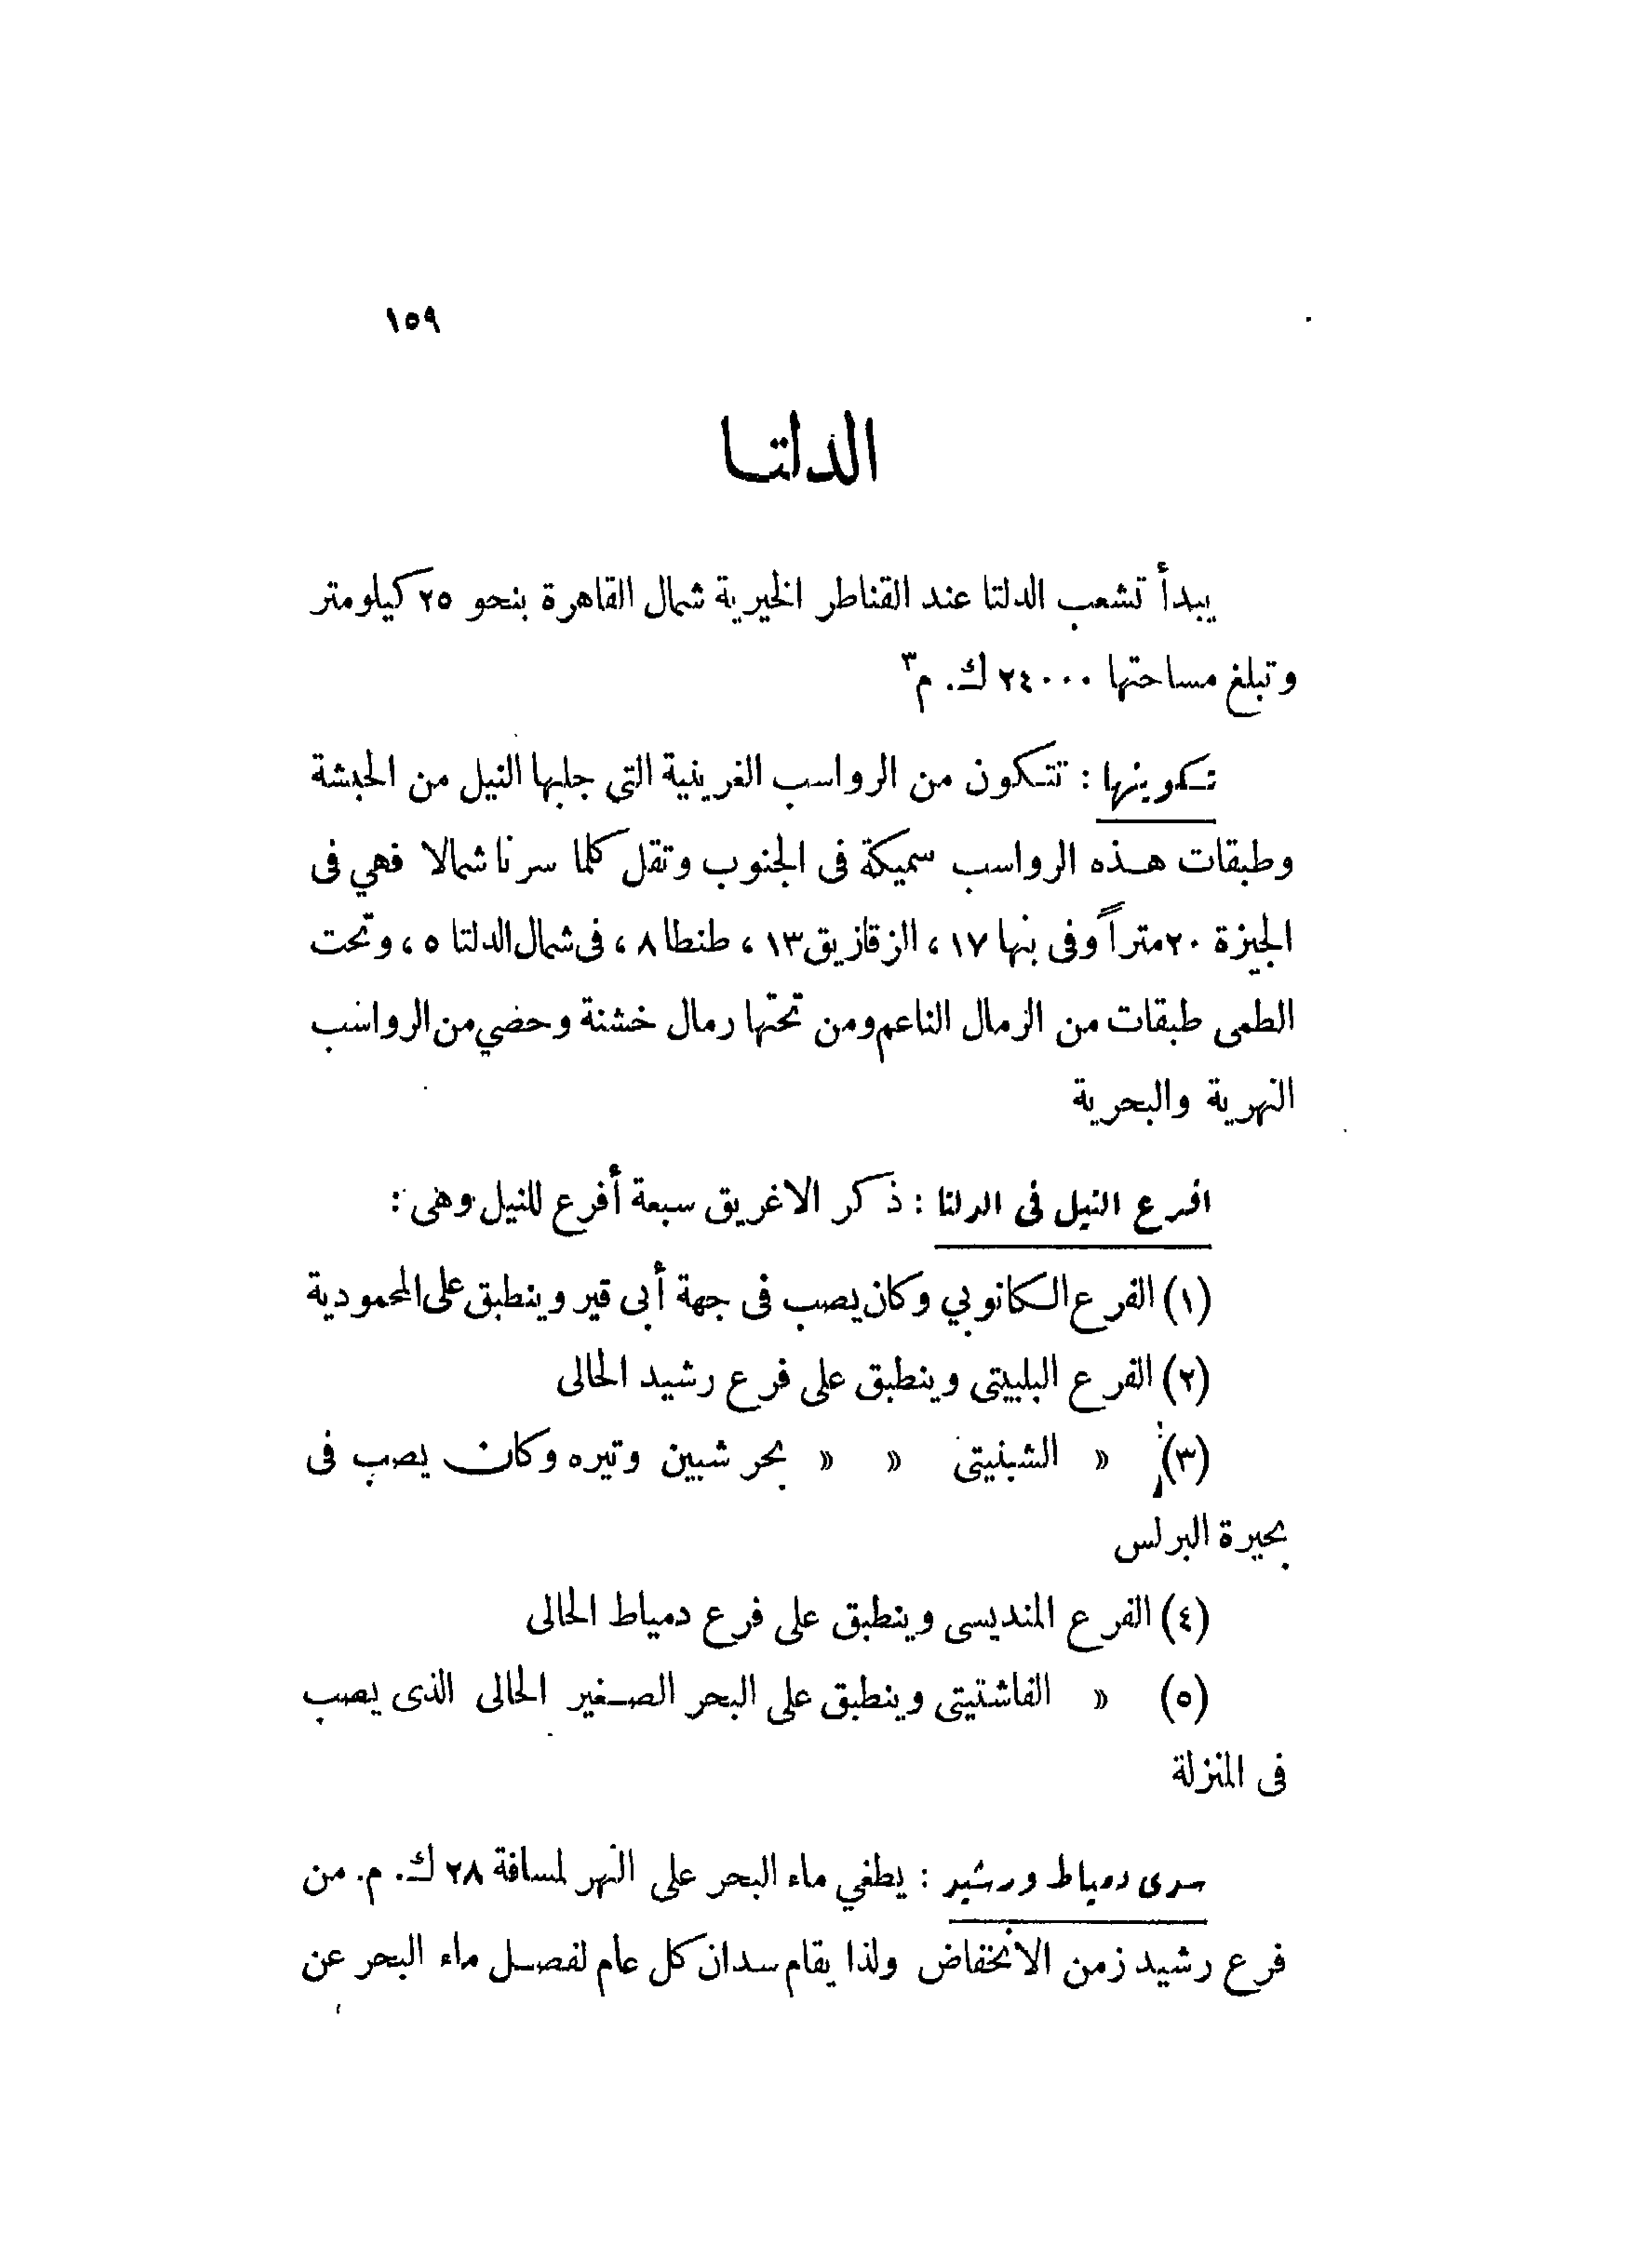 ١٥٩
الدلتا
يبدأ تشعب الدلتا عند القناطر الخيرية شمال القاهرة بنحو ٢٥ كيلومتر
وتبلغ مساحتها ٢٤٠٠٠ ك. م٣
تكوينها : تتكون من الرواسب الغرينية التي جلبها النيل من الحبشة
وطبقات هذه الرواسب سميكة فى الجنوب وتقل كلما سرنا شمالا فهي فى
الجيزة ٢٠ متراً وفى بنها ١٧ ، الزقازيق ١٣ ، طنطا ٨ ، فى شمال الدلتا ٥ ، وتحت
الطمى طبقات من الزمال الناعم ومن تحتها رمال خشنة وحضي من الرواسب
النهرية والبحرية
افرع النيل فى الدلتا : ذكر الاغريق سبعة أفرع للنيل وهى :
(١) الفرع الكانوبي وكان يصب فى جهة أبى قير وينطبق على المحمودية
(٢) الفرع البلبيتى وينطبق على فرع رشيد الحالى
(٣) « الشبنيتى « « بحر شبين وتيره وكان يصب فى
بحيرة البرلس
(٤) الفرع المنديسى وينطبق على فرع دمياط الحالى
(٥) « الفاشتيتى وينطبق على البحر الصغير الحالى الذى يصب
فى المنزلة
سدى دمياط ورشيد : يطغي ماء البحر على النهر لمسافة ٢٨ ك. م. من
فرع رشيد زمن الانخفاض ولذا يقام سدان كل عام لفصل ماء البحر عن